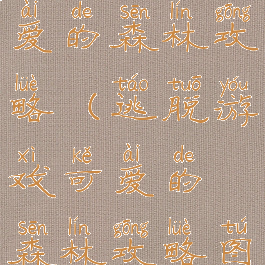 ài de sēn lín gōng
爱 的 森 林 攻
lüè táo tuō yóu
略 （ 逃 脱 游
xì kě ài de
戏 可 爱 的
sēn lín gōng lüè tú
森 林 攻 略 图